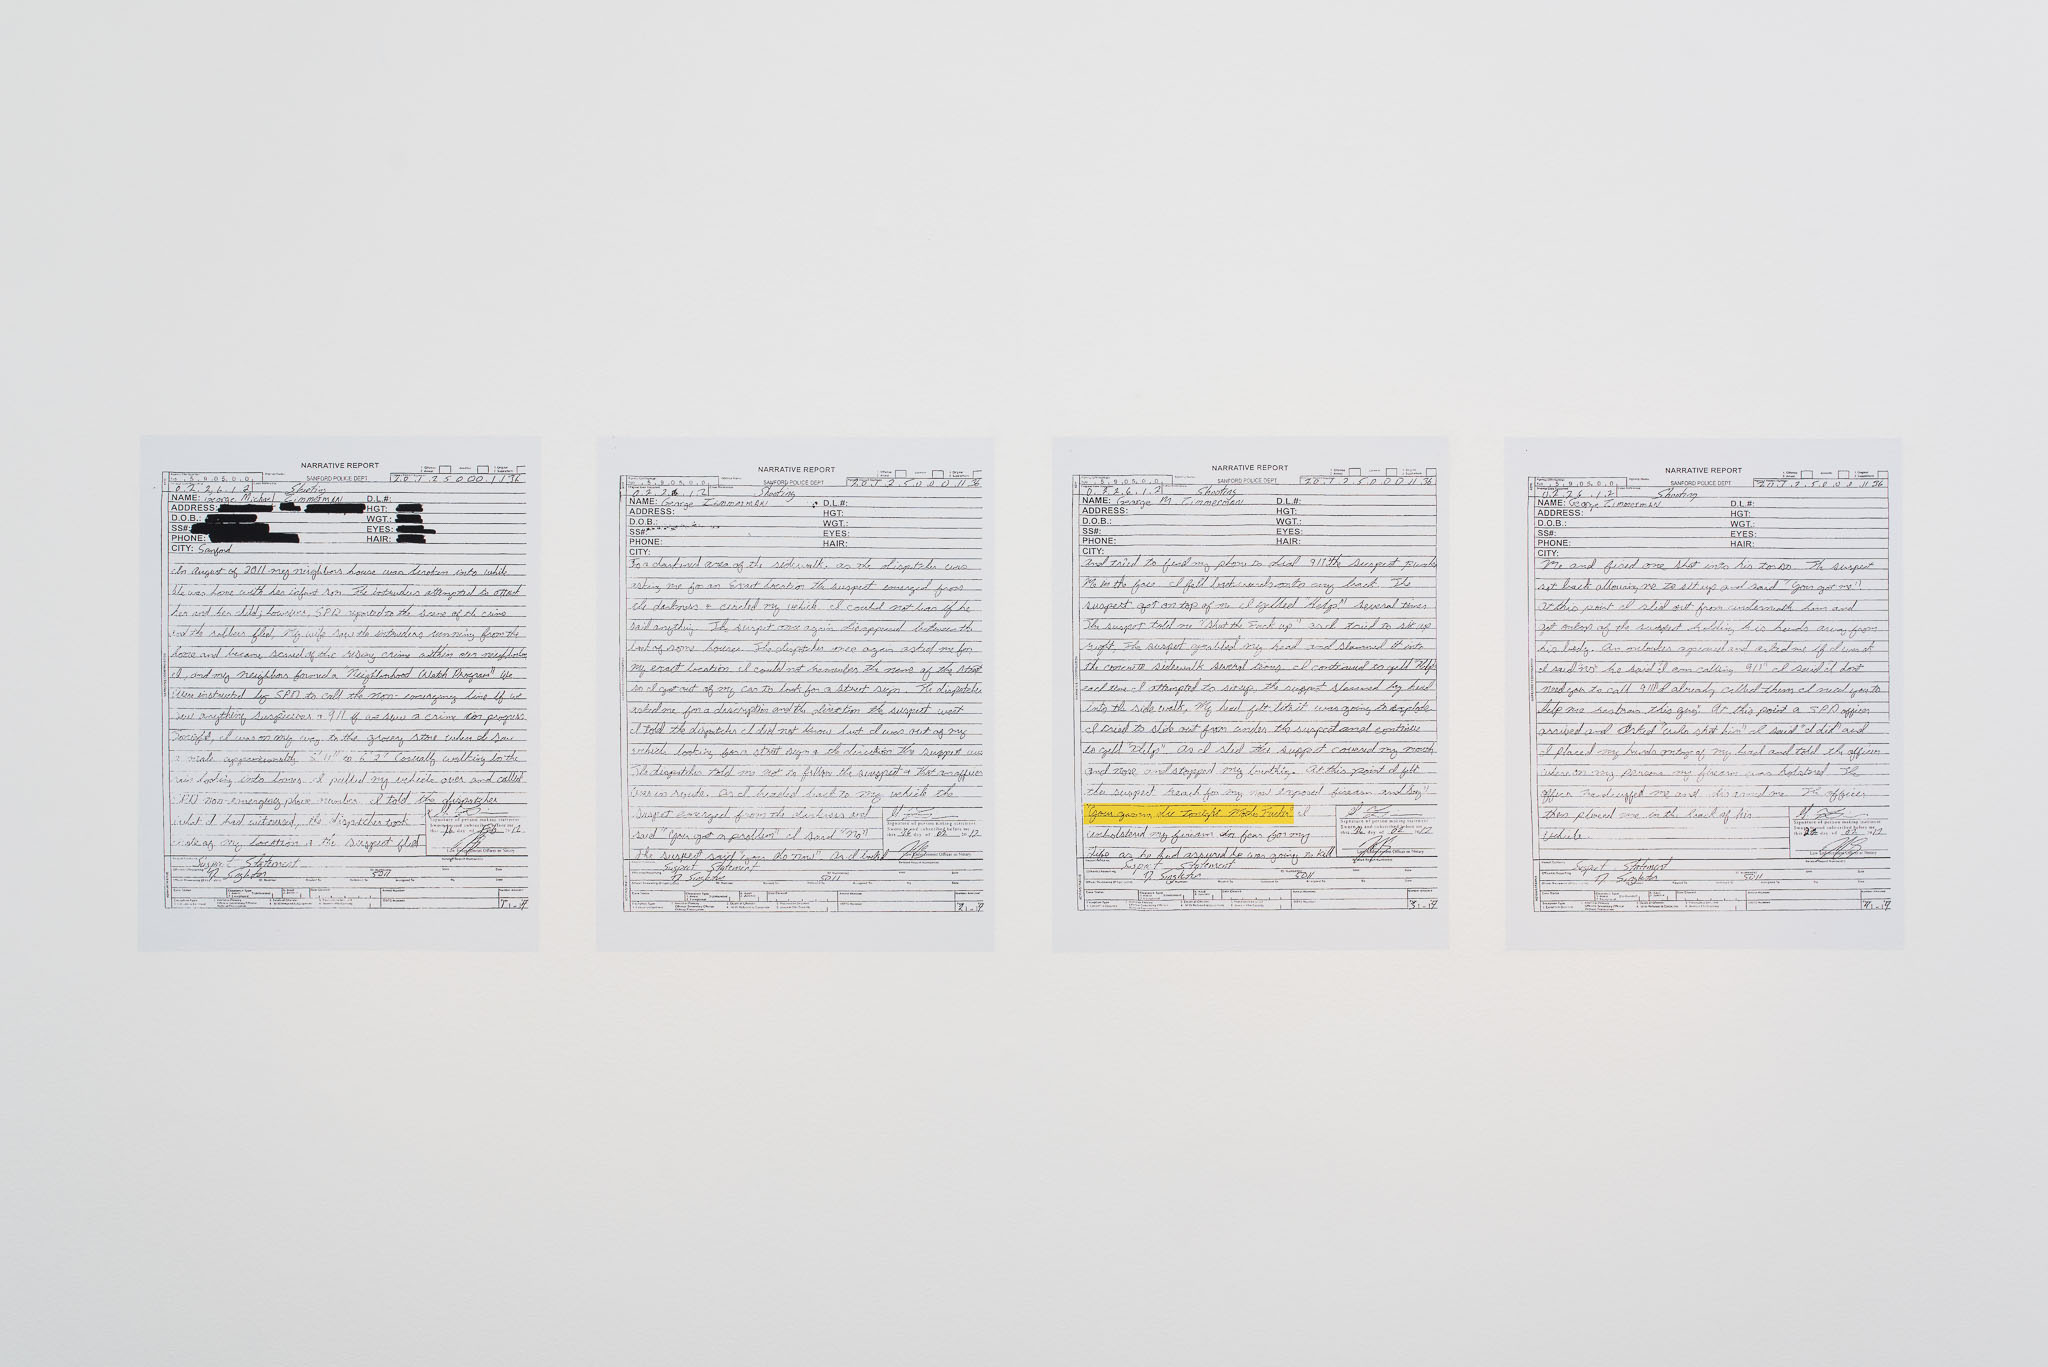 NARRATIVE REPORT
SANFORD POLICE DEPT.
0.2.2.6.1.2 Shooting
NAME: George Michael Zimmerman D.L.#:
ADDRESS: HGT:
D.O.B.: WGT.:
SS#: EYES:
PHONE: HAIR:
CITY: Sanford
In August of 2011 my neighbors house was broken into while
she was home with her infant son. The intruders attempted to attack
her and her child, however, SPD reported to the scene of the crime
and the robbers fled. My wife saw the intruders running from the
home and became scared of the rising crime within our neighborhood
I, and my neighbors formed a "Neighborhood Watch Program" We
were instructed by SPD to call the non-emergency line if we
saw anything suspicious & 911 if we saw a crime in progress.
Tonight, I was on my way to the grocery store when I saw
a male approximately 5'11" to 6'2" casually walking in the
rain looking into homes. I pulled my vehicle over and called
SPD non-emergency phone number. I told the dispatcher
what I had witnessed, the dispatcher took
note of my location & the suspect fled
Signature of person making statement
Sworn to and subscribed before me
Suspect Statement
D. Singleton 5011
NARRATIVE REPORT
SANFORD POLICE DEPT.
0.2.2.6.1.2 Shooting
NAME: George Zimmerman D.L.#:
ADDRESS: HGT:
D.O.B.: WGT.:
SS#: EYES:
PHONE: HAIR:
CITY:
to a darkened area of the sidewalk, as the dispatcher was
asking me for an exact location the suspect emerged from
the darkness & circled my vehicle. I could not hear if he
said anything. The suspect once again disappeared between the
back of some houses. The dispatcher once again asked me for
my exact location. I could not remember the name of the street
so I got out of my car to look for a street sign. The dispatcher
asked me for a description and the direction the suspect went
I told the dispatcher I did not know but I was out of my
vehicle looking for a street sign & the direction the suspect went
The dispatcher told me not to follow the suspect & that an officer
was in route. As I headed back to my vehicle the
suspect emerged from the darkness and
said "You got a problem" I said "No"
the suspect said "you do now" As I looked
Signature of person making statement
Sworn to and subscribed before me
Suspect Statement
D. Singleton 5011
NARRATIVE REPORT
SANFORD POLICE DEPT.
0.2.2.6.1.2 Shooting
NAME: George M. Zimmerman D.L.#:
ADDRESS: HGT:
D.O.B.: WGT.:
SS#: EYES:
PHONE: HAIR:
CITY:
and tried to find my phone to dial 911 the suspect punched
me in the face. I fell backwards onto my back. The
suspect got on top of me. I yelled "Help" several times
The suspect told me "Shut the Fuck up" as I tried to sit up
right, The suspect grabbed my head and slammed it into
the concrete sidewalk several times. I continued to yell "Help"
each time I attempted to sit up, the suspect slammed my head
into the side walk, My head felt like it was going to explode
I tried to slide out from under the suspect and continue
to yell "Help". As I slid the suspect covered my mouth
and nose and stopped my breathing. At this point I felt
the suspect reach for my now exposed firearm and say"
"Your gonna die Tonight Mother Fucker" I
unholstered my firearm in fear for my
life as he had assured he was going to kill
Signature of person making statement
Sworn to and subscribed before me
Suspect Statement
D. Singleton 5011
NARRATIVE REPORT
SANFORD POLICE DEPT.
0.2.2.6.1.2 Shooting
NAME: George Zimmerman D.L.#:
ADDRESS: HGT:
D.O.B.: WGT.:
SS#: EYES:
PHONE: HAIR:
CITY:
Me and fired one shot into his torso. The suspect
sat back allowing me to sit up and said "You got me"!
At this point I slid out from underneath him and
got on top of the suspect holding his hands away from
his body. An onlooker appeared and asked me if I was ok
I said "no" he said "I am calling 911" I said I don't
need you to call 911 I already called them I need you to
help me restrain this guy. At this point a SPD officer
arrived and asked "who shot him" I said "I did" and
I placed my hands on top of my head and told the officer
where on my persons my firearm was holstered. The
officer handcuffed me and disarmed me. The officer
then placed me in the back of his
Vehicle.
Signature of person making statement
Sworn to and subscribed before me
Suspect Statement
D. Singleton 5011